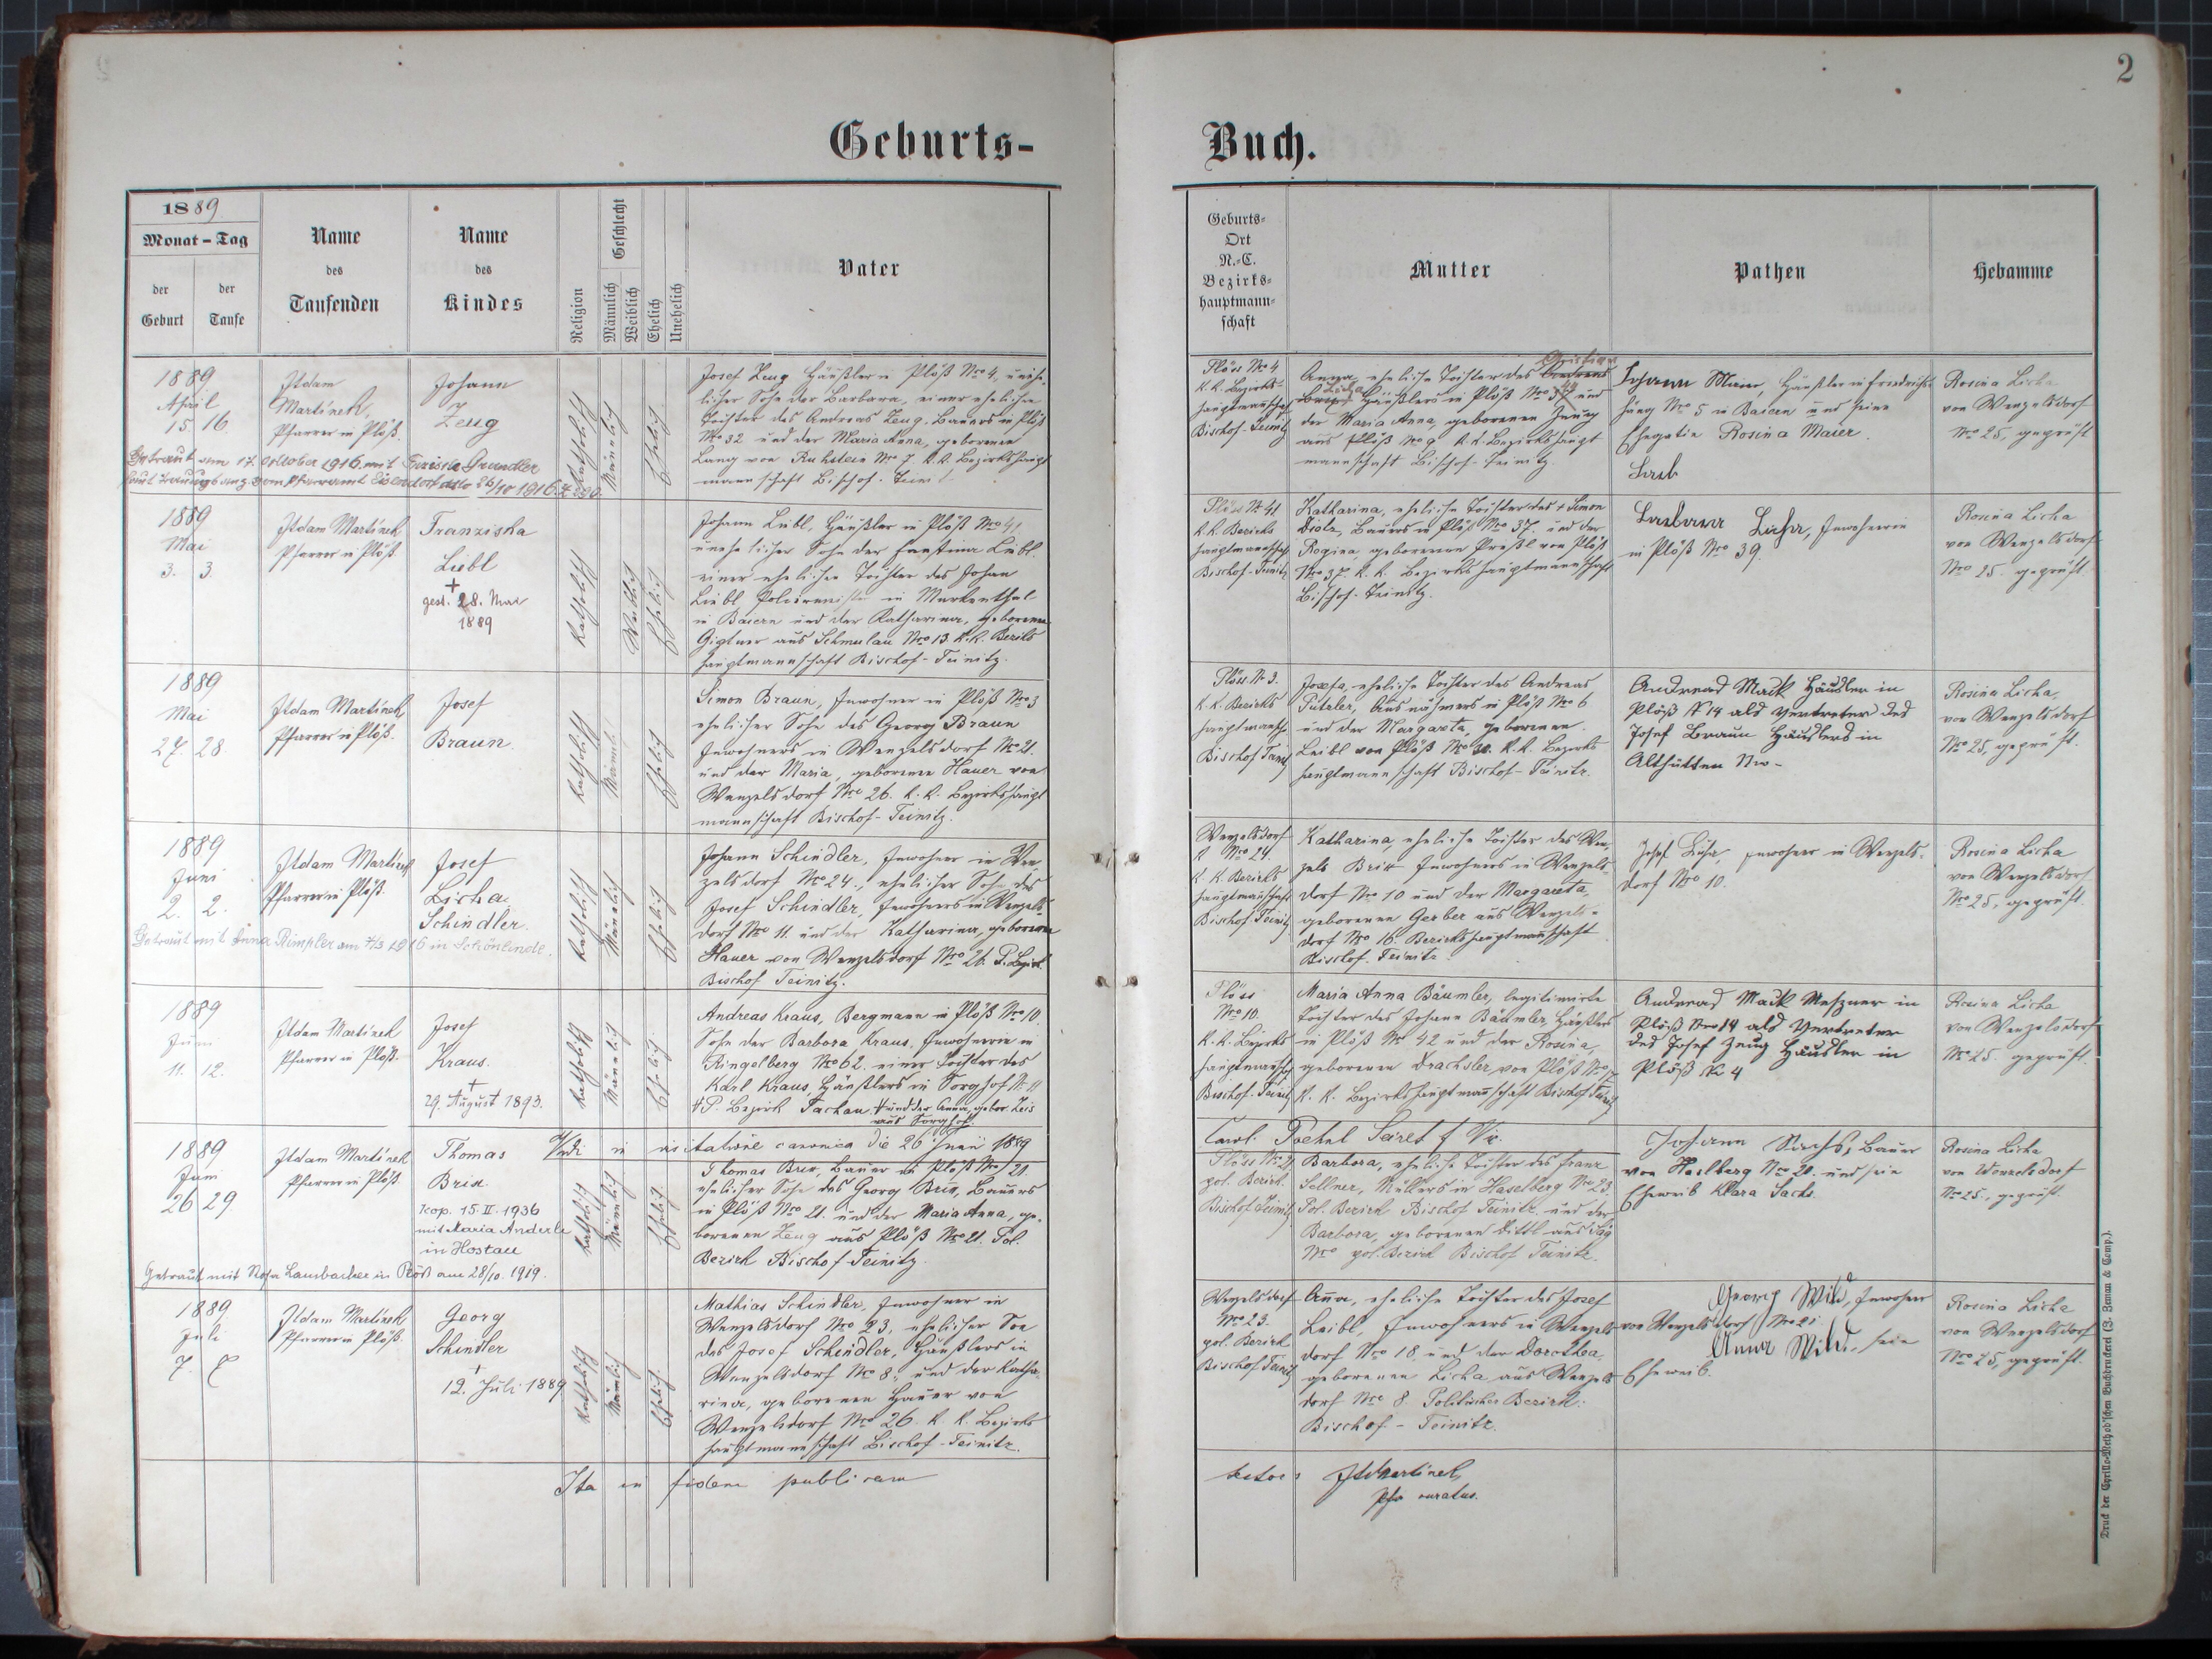 2
Geburts-
Buch.
1889
Monat - Tag
der Geburt
der Taufe
Name des Taufenden
Name des Kindes
Religion
Geschlecht
Männlich
Weiblich
Ehelich
Unehelich
Vater
Geburts-
Ort
N.-C.
Bezirks-
hauptmann-
schaft
Mutter
Pathen
Hebamme
1889
April
15 16
Adam
Martinek,
Pfarrer in Plöß.
Johann
Zeug
Getraut am 17. Oktober 1916 mit
Katholisch
Männlich
Ehelich
Josef Zeug Häußler in Plöß Nro 4, unehe-
licher Sohn der Barbara, einer ehelichen
Tochter des Andreas Zeug, Bauers in Plöß
Nro 32 und der Maria Anna, geborenen
Lang von Nro 7 K.K. Bezirkshaupt
mannschaft Bischof-
Plöss Nro 4
K.K. Bezirks-
hauptmannschaft
Bischof-Teinitz
Anna, eheliche Tochter des
Häußlers in Plöß und
der Maria Anna, geborenen Zeug
aus Plöß Nro 9 K.K. Bezirkshaupt
mannschaft Bischof-Teinitz.
Johann Maier, Häußler in Friedrichs-
häng Nro 5 in Baiern und seine
Ehegatin Rosina Maier.
Rosina Licha
von Wenzelsdorf
Nro 25, geprüft
1889
Mai
3. 3.
Adam Martinek
Pfarrer in Plöß.
Franziska
Liebl
+
gest. 28. Mai
1889
Katholisch
Weiblich
Ehelich
Johann Liebl, Häußler in Plöß Nro 41
unehelicher Sohn der Liebl
einer ehelichen Tochter des Johan
Liebl in
in Baiern und der Katharina, geborenen
aus Schmolau Nro 13. K.K. Bezirks
hauptmannschaft Bischof-Teinitz.
Plöss N. 41
K.K. Bezirks
hauptmannschaft
Bischof-Teinitz
Katharina, eheliche Tochter des + Simon
Bauers in Plöß Nro 37. und der
Regina geborenen von Plöß
Nro 37. K.K. Bezirkshauptmannschaft
Bischof-Teinitz.
Barbara Inwohnerin
in Plöß Nro 39.
Rosina Licha
von Wenzelsdorf
Nro 25. geprüft.
1889
Mai
27. 28.
Adam Martinek
Pfarrer in Plöß.
Josef
Braun.
Katholisch
Männl.
Ehelich
Simon Braun, Inwohner in Plöß Nro 3
ehelicher Sohn des Georg Braun
Inwohners in Wenzelsdorf Nro 21.
und der Maria, geborene Hauer von
Wenzelsdorf Nro 26. K.K. Bezirkshaupt
mannschaft Bischof-Teinitz.
Plöss N. 3.
K.K. Bezirks
hauptmansch
Bischof
Josefa, eheliche Tochter des Andreas
Ausnahmers in Plöß Nro 6
und der Margareta, geborenen
Leibl von Plöß K.K. Bezirks
hauptmannschaft Bischof-Teinitz.
Andreas Mack Häusler in
Plöß N 14 als Vertreter des
Josef Braun Häuslers in
Althütten Nro -
Rosina Licha,
von Wenzelsdorf
Nro 25, geprüft.
1889
Juni
2. 2.
Adam Martinek
Pfarrer in Plöß.
Josef
Licha
Schindler.
Getraut mit Anna Rimpler am in Schönlinde.
Katholisch
Männlich
Ehelich
Johann Schindler, Inwohner in Wen
zelsdorf Nro 24., ehelicher Sohn des
Josef Schindler, Inwohners in Wenzels-
dorf Nro 11. und der Katharina, geborenen
Hauer von Wenzelsdorf Nro 26. P. Bezirk.
Bischof Teinitz.
Wenzelsdorf
Nro 24.
K.K. Bezirks
hauptmannschaft
Bischof Teinitz
Katharina, eheliche Tochter des Wen-
zels Brix Inwohners in Wenzels-
dorf Nro 10 und der Margareta,
geborenen Gerber aus Wenzels-
dorf Nro 16. Bezirkshauptmannschaft
Bischof-Teinitz.
Josef Inwohner in Wenzels-
dorf Nro 10.
Rosina Licha
von Wenzelsdorf
Nro 25, geprüft.
1889
Juni
11. 12.
Adam Martinek
Pfarrer in Plöß.
Josef
Kraus.
+
29. August 1893.
Katholisch
Männlich
Ehelich
Andreas Kraus, Bergmann in Plöß Nro 10.
Sohn der Barbora Kraus, Inwohnerin in
Ringelberg Nro 62. einer Tochter des
Karl Kraus, Häußlers in Sorghof N. 11
P. Bezirk Tachau. und der Anna, gebor. Zeis
aus Sorghof.
Plöss
Nro 10.
K.K. Bezirks
hauptmansch
Bischof-Teinitz
Maria Anna Bäumler, legitimirte
Tochter des Johann Bäumler, Häußlers
in Plöß Nro 42 und der Rosina,
geborenen Drachsler, von Plöß
K.K. Bezirkshauptmannschaft Bischof Teinitz
Andreas Mack Meszner in
Plöß Nro 14 als Vertreter
des Josef Zeug Häusler in
Plöß N 4
Rosina Licha
von Wenzelsdorf
Nro 25. geprüft.
Vidi in visitatione canonica die 26 Juni 1889
Carol.
1889
Juni
26 29
Adam Martinek
Pfarrer in Plöß.
Thomas
Brix.
kop. 15. II. 1936
mit Maria Anderle
in Hostau
Getraut mit Rosa Lambacher in Plöß am 28/10. 1919.
Katholisch
Männlich
Ehelich
Thomas Brix, Bauer in Plöß Nro 21.
ehelicher Sohn des Georg Brix, Bauers
in Plöß Nro 21. und der Maria Anna, ge-
borenen Zeug aus Plöß Nro 21. Pol.
Bezirk Bischof Teinitz.
Plöss Nro 21
pol. Bezirk.
Bischof Teinitz
Barbora, eheliche Tochter des Franz
Sellner, Müllers in Haselberg Nro 23.
Pol. Bezirk Bischof Teinitz und der
Barbora, geborenen Dittl aus
Nro pol. Bezirk Bischof Teinitz.
Johann Sachs, Bauer
von Haslberg Nro 20. und sein
Eheweib Klara Sachs.
Rosina Licha
von Wenzelsdorf
Nro 25., geprüft.
1889
Juli
7. 7
Adam Martinek
Pfarrer in Plöß.
Georg
Schindler
+
12. Juli 1889
Katholisch
Männlich
Ehelich
Mathias Schindler, Inwohner in
Wenzelsdorf Nro 23, ehelicher Son
des Josef Schindler, Häußlers in
Wenzelsdorf Nro 8., und der Katha-
rina, geborenen Hauer von
Wenzelsdorf Nro 26. K.K. Bezirks
hauptmannschaft Bischof-Teinitz.
Wenzelsdorf
Nro 23.
pol. Bezirk
Bischof Teinitz
Anna, eheliche Tochter des Josef
Leibl, Inwohners in Wenzels-
dorf Nro 18. und der Dorothea,
geborenen Licha aus Wenzels-
dorf Nro 8. Politischer Bezirk:
Bischof-Teinitz.
Georg Wild, Inwohner
von Wenzelsdorf Nro 21.
Anna Wild, sein
Eheweib.
Rosina Licha
von Wenzelsdorf
Nro 25, geprüft.
Ita in fidem publicam
testor: AdMartinek,
curatus.
Druck der Cyrillo-Method'schen Buchdruckerei (J. Zeman & Comp.).